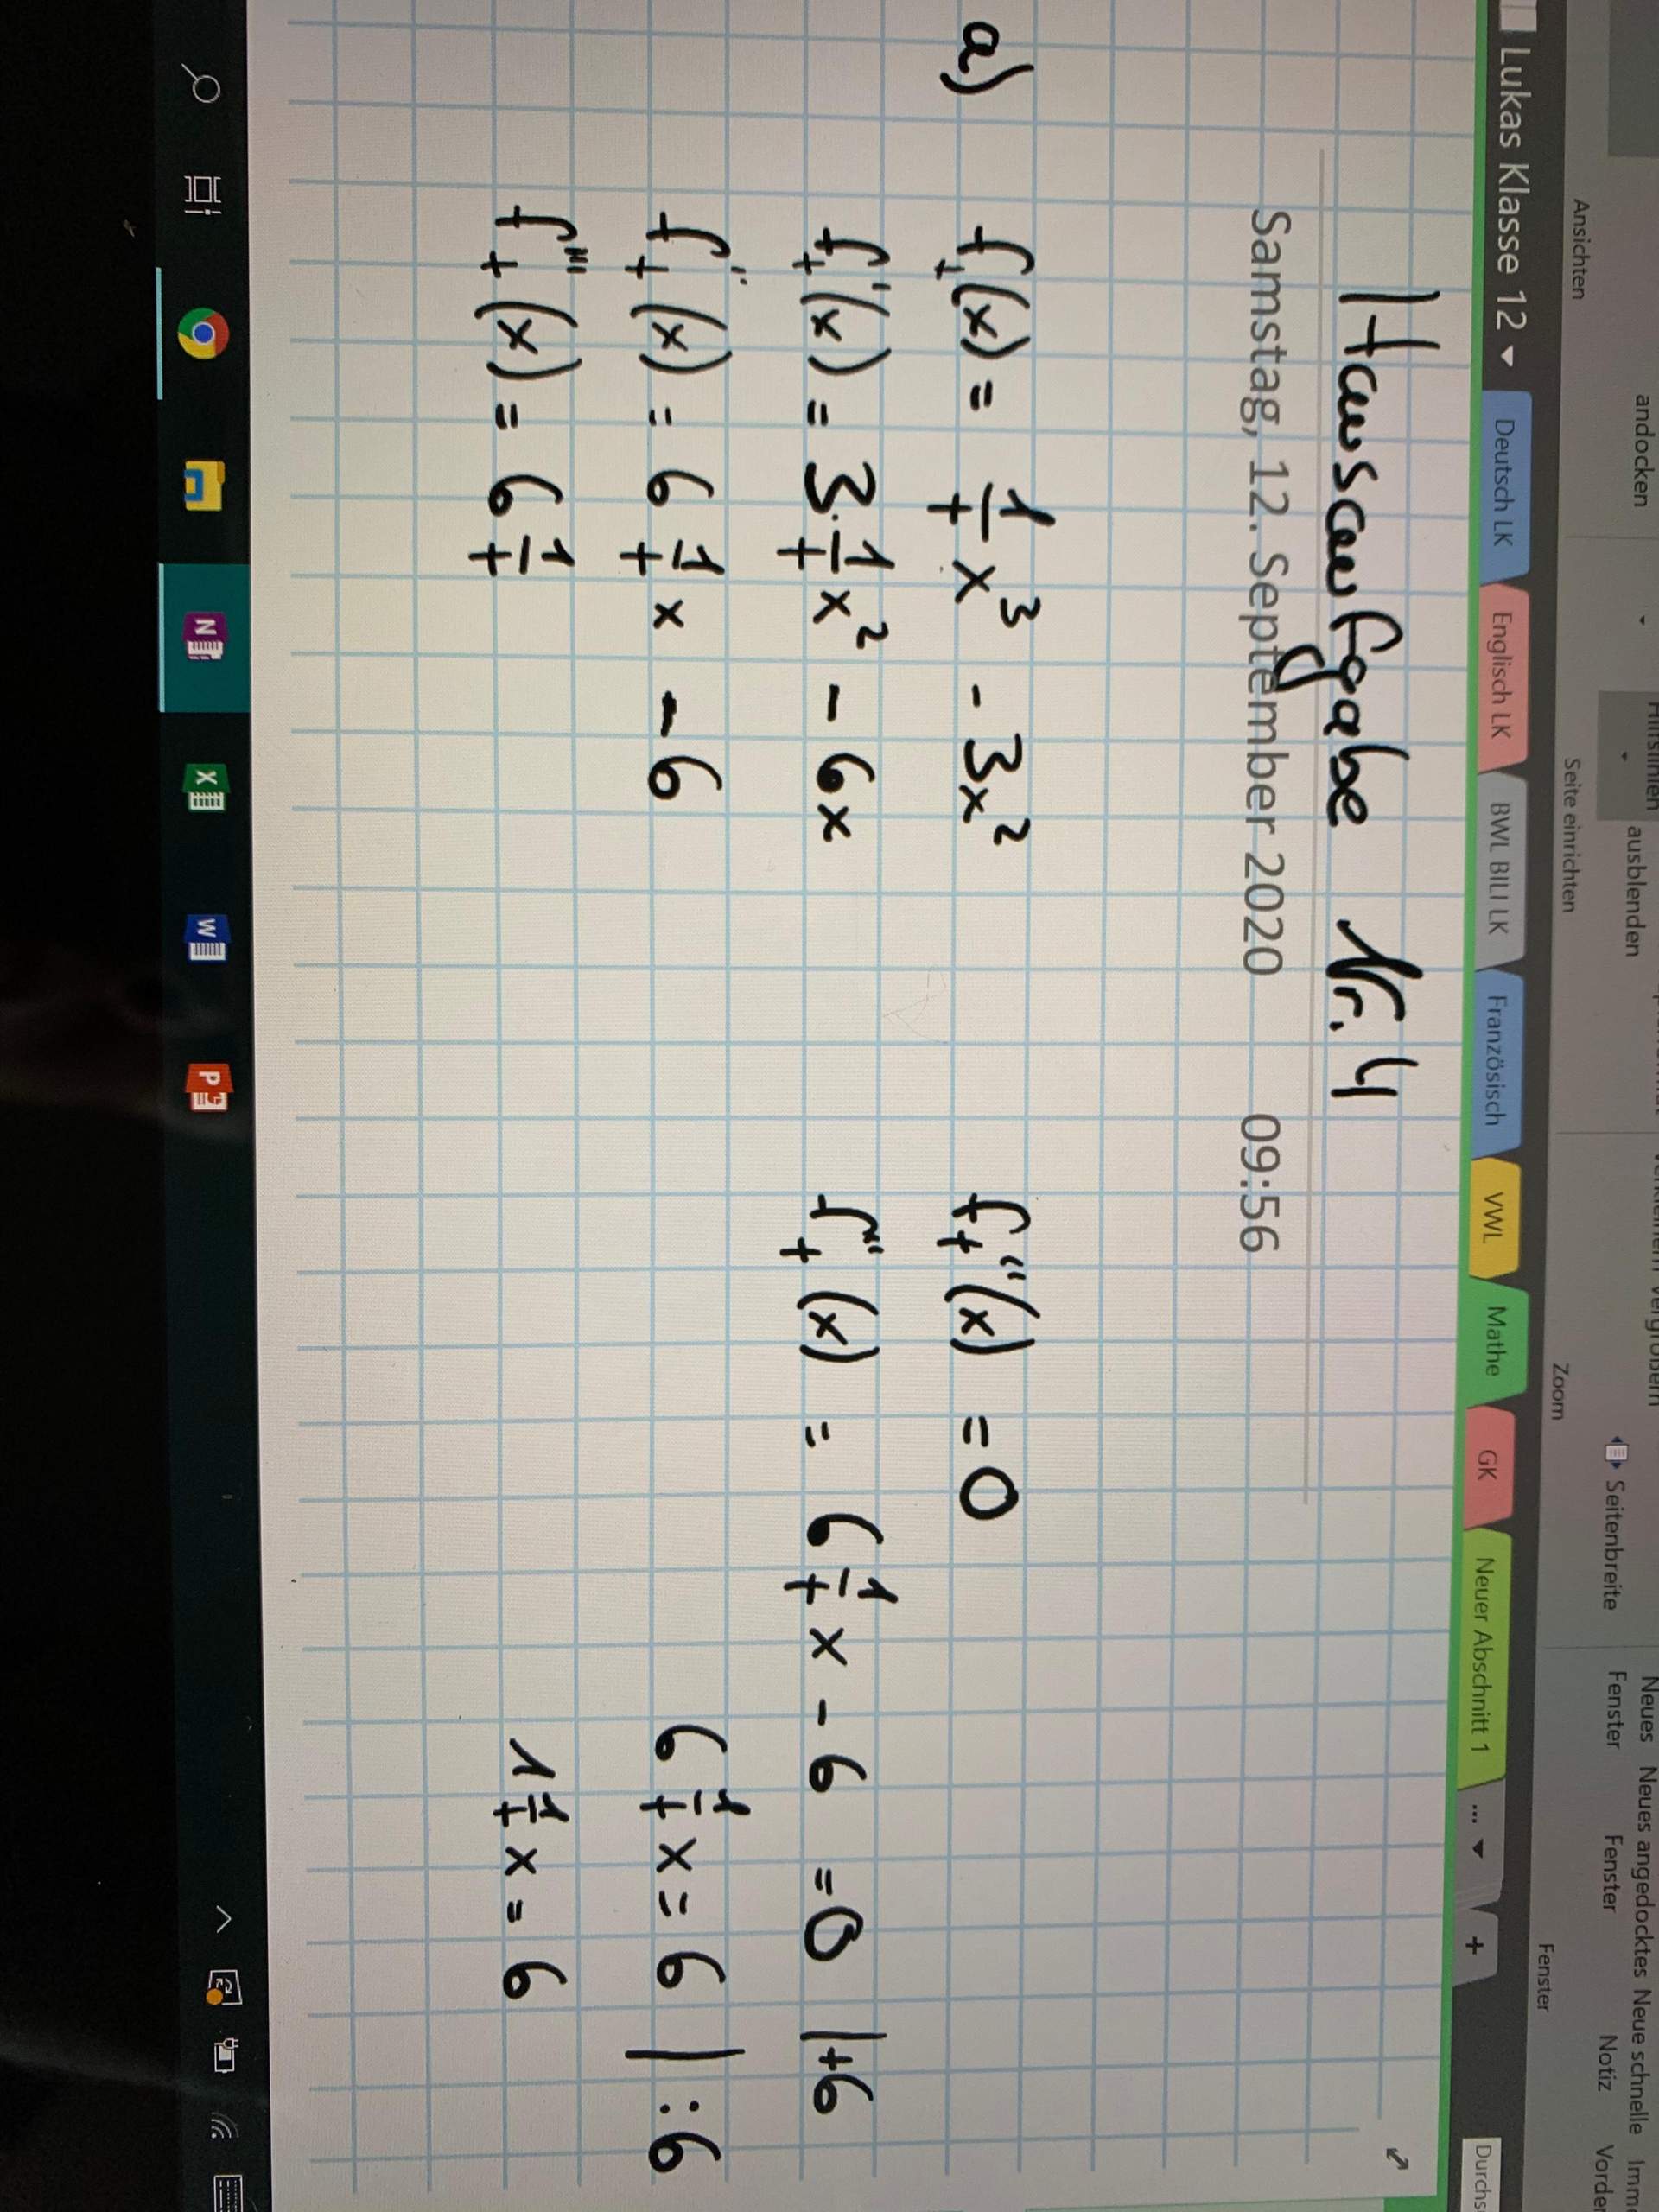 andocken
Hilfslinien ausblenden
Seitenbreite
Neues Fenster
Neues Fenster
angedocktes
Neue schnelle Notiz
Ansichten
Seite einrichten
Zoom
Fenster
Lukas Klasse 12
Deutsch LK
Englisch LK
BWL BILI LK
Französisch
VWL
Mathe
GK
Neuer Abschnitt 1
...
+
Hausaufgabe Nr. 4
Samstag, 12. September 2020 09:56
a) f_t(x) = 1/t x³ - 3x²
f_t''(x) = 0
f_t'(x) = 3·1/t x² - 6x
f_t''(x) = 6 1/t x - 6 = 0 |+6
f_t''(x) = 6 1/t x - 6
6 1/t x = 6 | :6
f_t'''(x) = 6 1/t
1 1/t x = 6